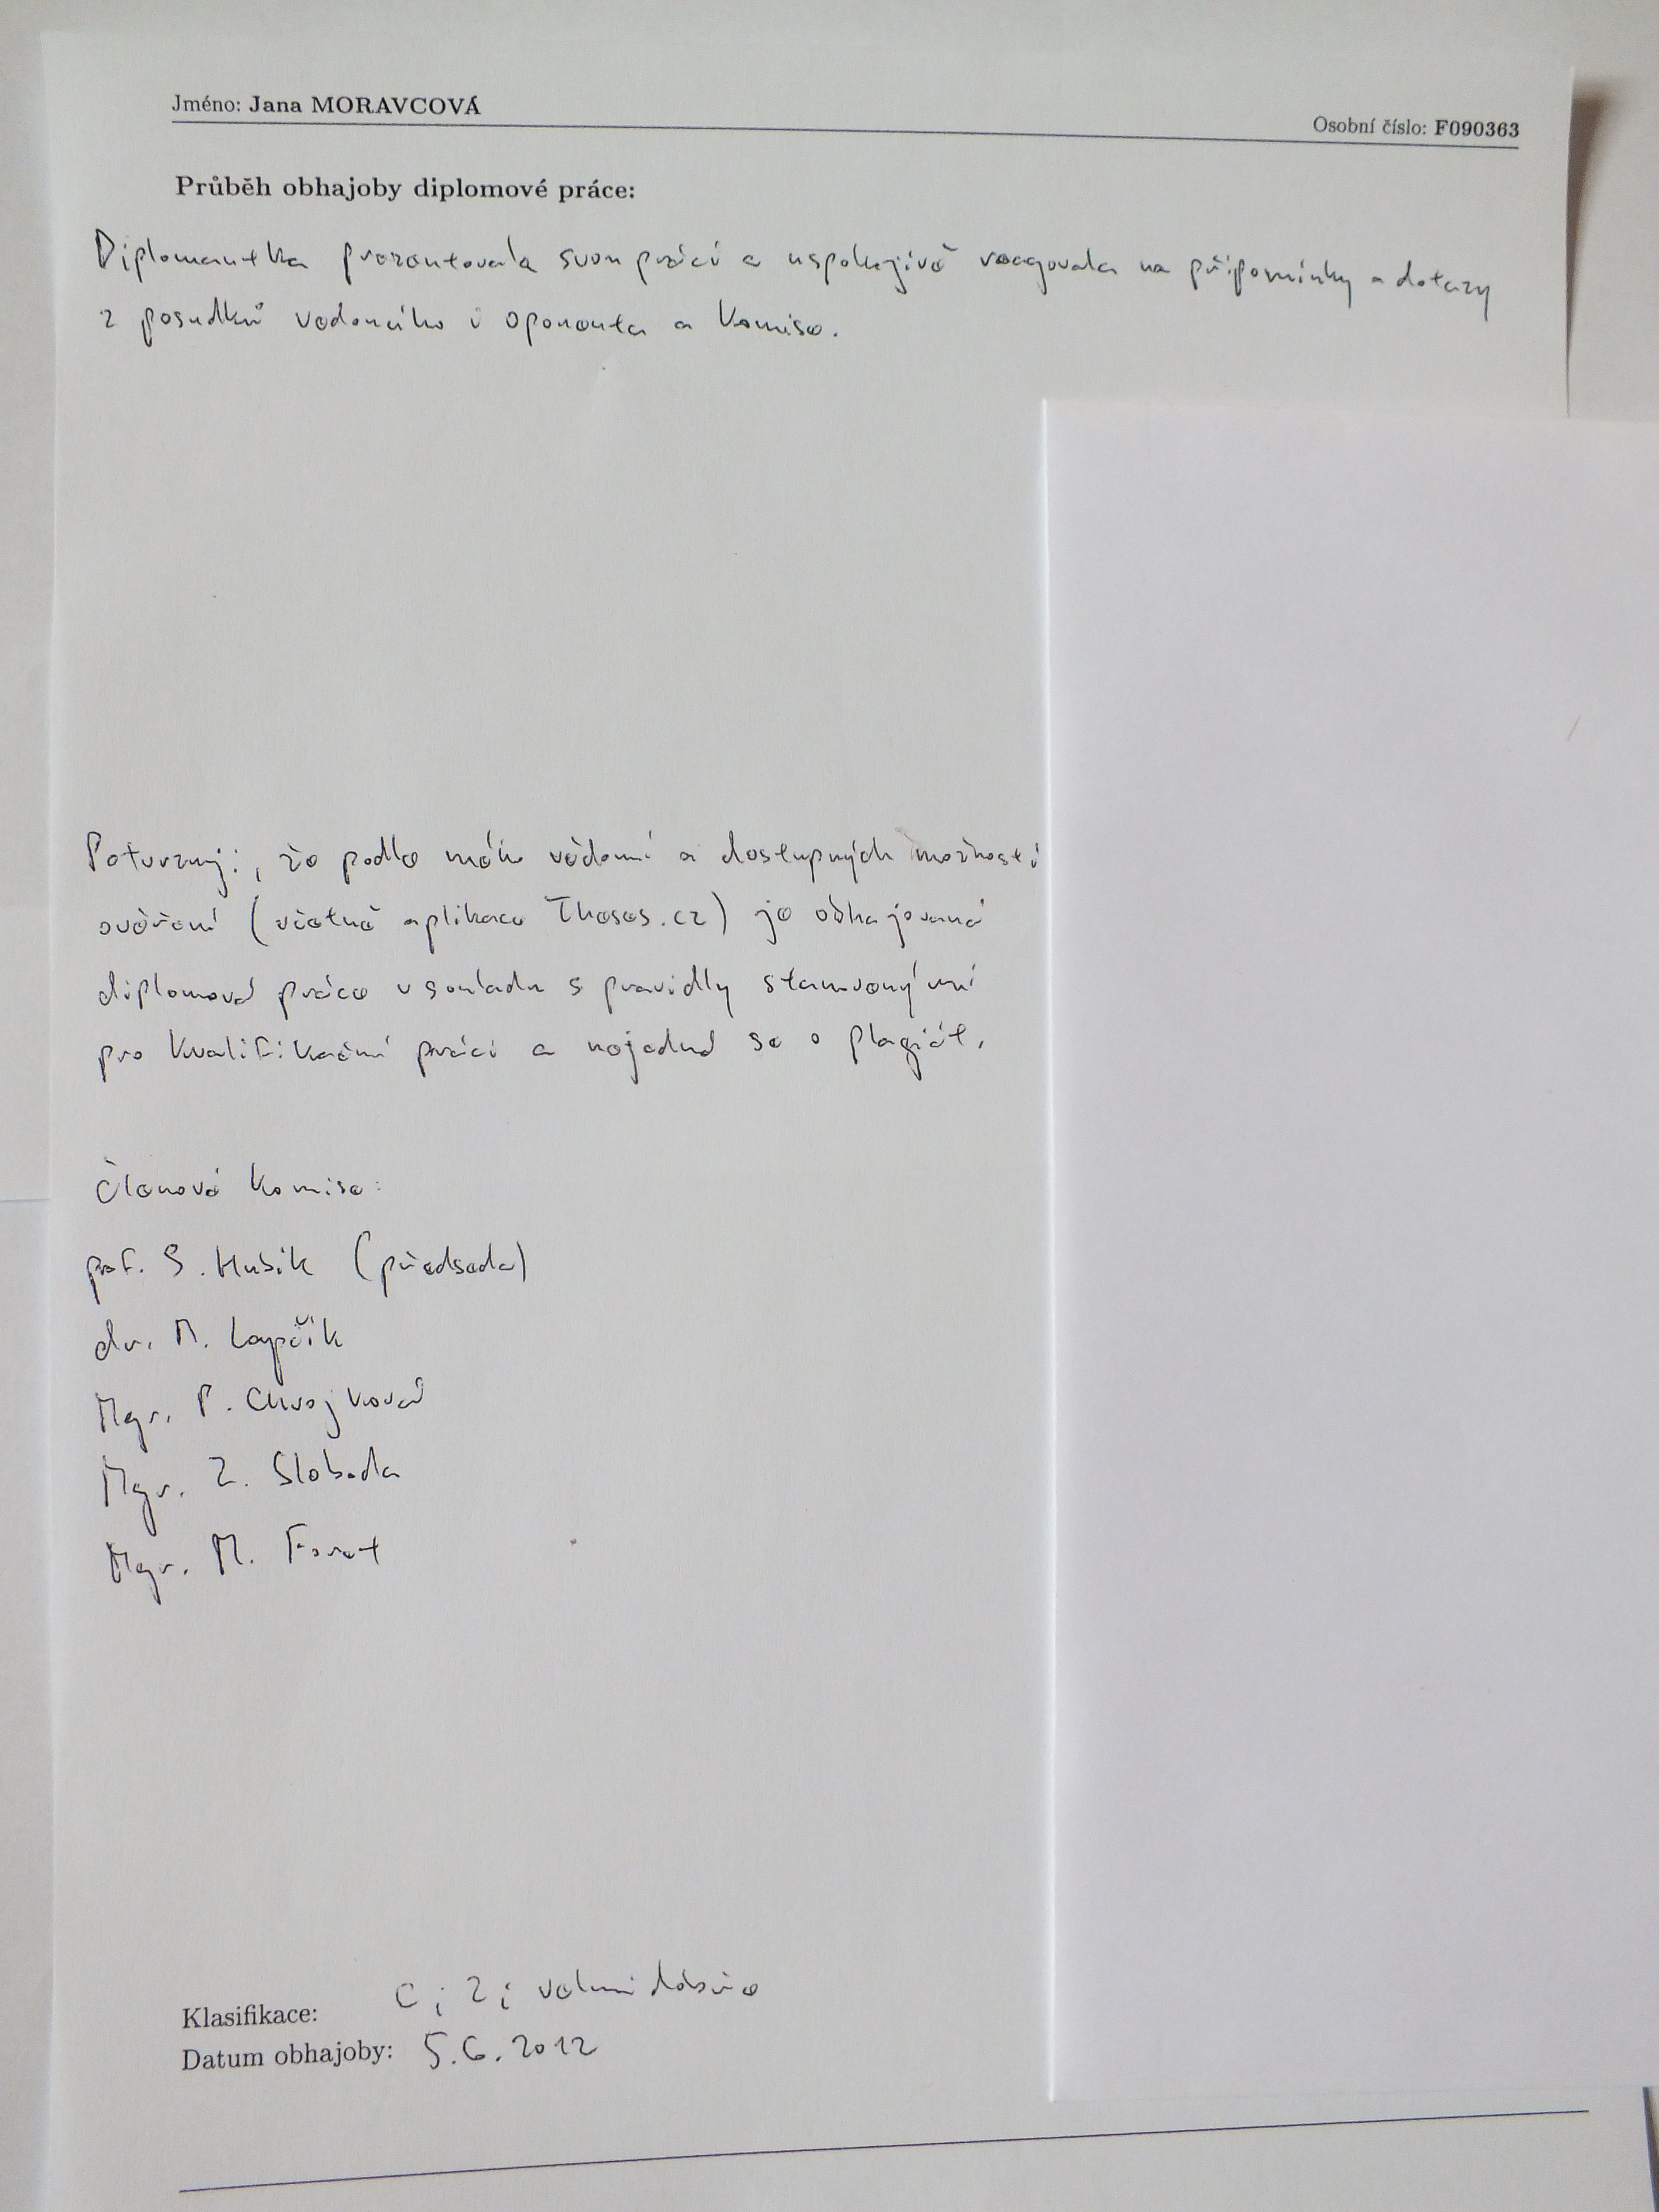 Jméno: Jana MORAVCOVÁ
Osobní číslo: F090363
Průběh obhajoby diplomové práce:
Diplomantka prezentovala svou práci a uspokojivě reagovala na připomínky a dotazy
z posudků vedoucího i oponenta a komise.
Potvrzuji, že podle mého vědomí a dostupných možností
ověření (včetně aplikace Theses.cz) je obhajovaná
diplomová práce v souladu s pravidly stanovenými
pro kvalifikační práci a nejedná se o plagiát.
Členové komise:
prof. S. Hubík (předseda)
dr. M. Lapčík
Mgr. P. Chvojková
Mgr. Z. Sloboda
Mgr. M. Foret
Klasifikace: C; 2; velmi dobře
Datum obhajoby: 5.6.2012